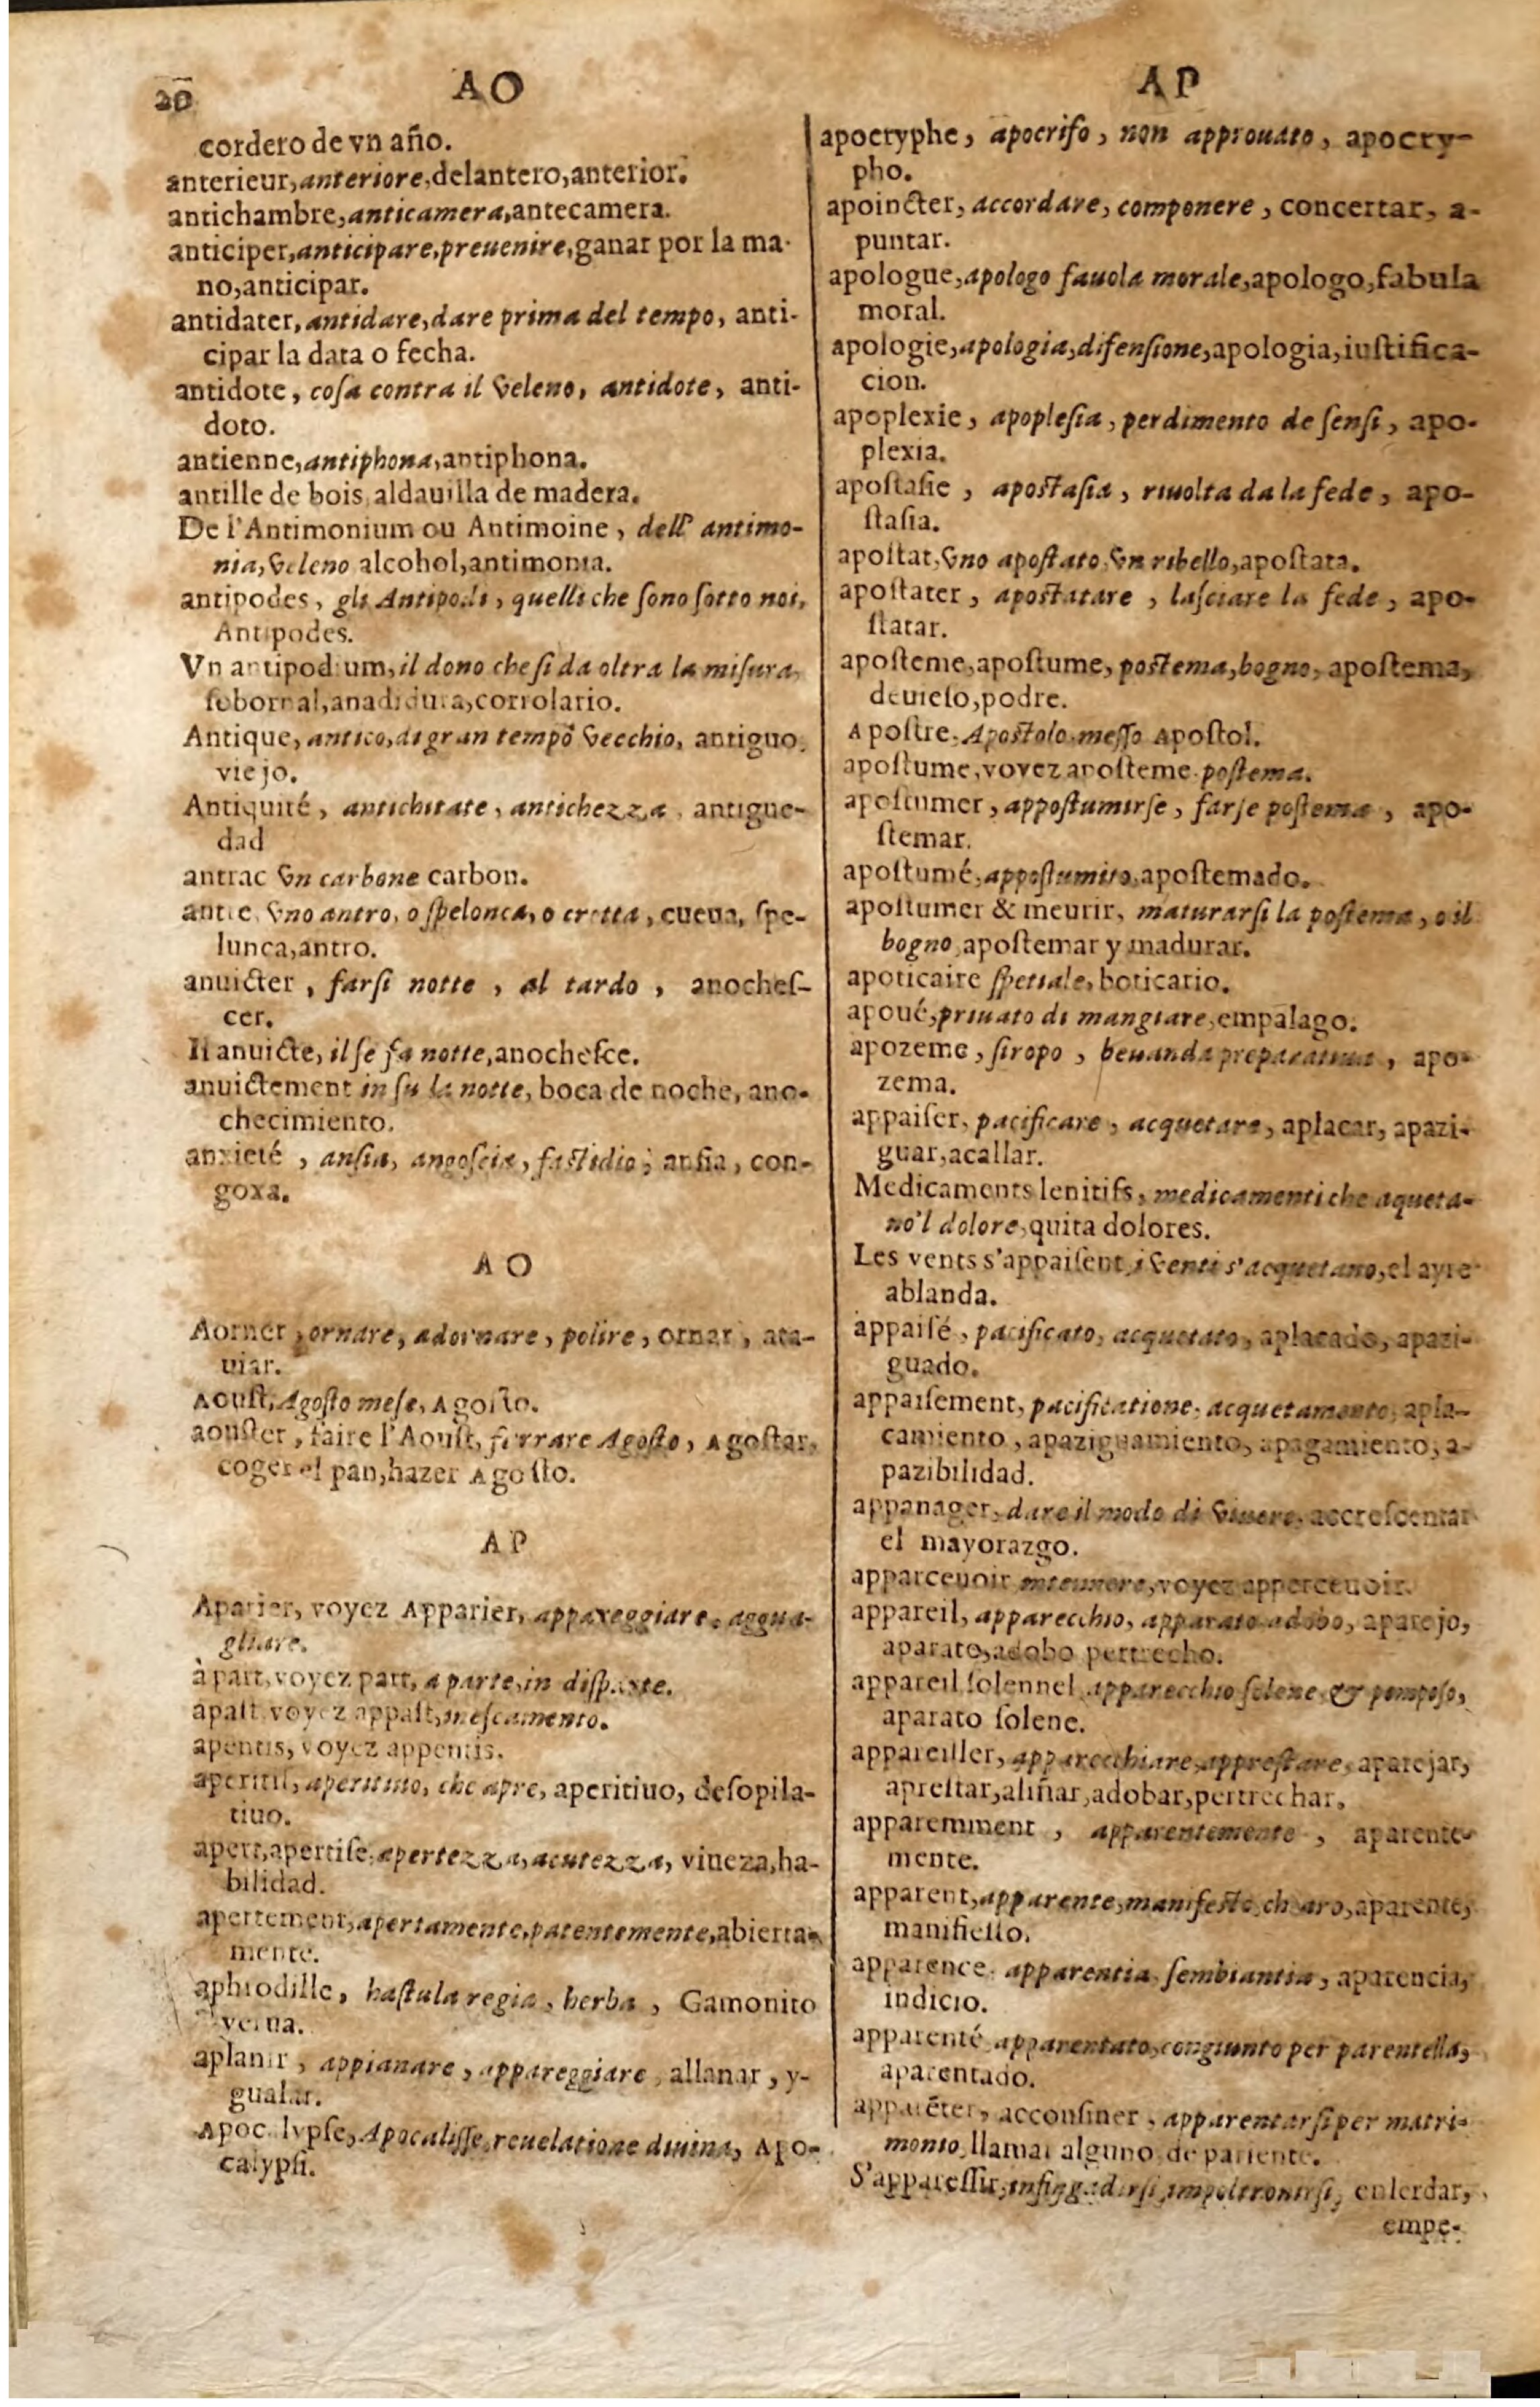 20
AO
AP
cordero de vn año.
anterieur, anteriore, delantero, anterior.
antichambre, anticamera, antecamera.
anticiper, anticipare, preuenire, ganar por la ma-
no, anticipar.
antidater, antidare, dare prima del tempo, anti-
cipar la data o fecha.
antidote, coſa contra il veleno, antidote, anti-
doto.
antienne, antiphona, antiphona.
antille de bois, aldauilla de madera.
De l'Antimonium ou Antimoine, dell' antimo-
nia, veleno alcohol, antimonia.
antipodes, gli Antipodi, quelli che ſono ſotto noi,
Antipodes.
Vn antipodium, il dono che ſi da oltra la miſura,
ſobornal, anadidura, corrolario.
Antique, antico, di gran tempo vecchio, antiguo,
viejo.
Antiquité, antichitate, antichezza, antigue-
dad
antrac vn carbone carbon.
antre, vno antro, o ſpelonca, o crotta, cueua, ſpe-
lunca, antro.
anuicter, farſi notte, al tardo, anocheſ-
cer.
Il anuicte, il ſe fa notte, anocheſce.
anuictement in ſu la notte, boca de noche, ano-
checimiento.
anxieté, anſia, angoſcia, faſtidio, anſia, con-
goxa.
AO
Aorner, ornare, adornare, polire, ornar, ata-
uiar.
Aouſt, Agoſto meſe, Agoſto.
aouſter, faire l'Aouſt, ferrare Agoſto, Agoſtar,
coger el pan, hazer Agoſto.
AP
Aparier, voyez Apparier, appareggiare, aggua-
gliare.
à part, voyez part, a parte, in diſparte.
apaſt, voyez appaſt, ineſcamento.
apentis, voyez appentis.
aperitif, aperitiuo, che apre, aperitiuo, deſopila-
tiuo.
apert, apertiſe, apertezza, acutezza, viueza, ha-
bilidad.
apertement, apertamente, patentemente, abierta-
mente.
aphrodille, haſtula regia, herba, Gamonito
yerua.
aplanir, appianare, appareggiare, allanar, y-
gualar.
Apocalypſe, Apocaliſſe, reuelatione diuina, Apo-
calypſi.
apocryphe, apocrifo, non approuato, apocry-
pho.
apoincter, accordare, componere, concertar, a-
puntar.
apologue, apologo fauola morale, apologo, fabula
moral.
apologie, apologia, difenſione, apologia, iuſtifica-
cion.
apoplexie, apopleſia, perdimento de ſenſi, apo-
plexia.
apoſtaſie, apoſtaſia, riuolta da la fede, apo-
ſtaſia.
apoſtat, vno apoſtato, vn ribello, apoſtata.
apoſtater, apoſtatare, laſciare la fede, apo-
ſtatar.
apoſteme, apoſtume, poſtema, bogno, apoſtema,
deuieſo, podre.
Apoſtre, Apoſtolo, meſſo Apoſtol.
apoſtume, voyez apoſteme poſtema.
apoſtumer, appoſtumirſe, farſe poſtema, apo-
ſtemar.
apoſtumé, appoſtumito, apoſtemado.
apoſtumer & meurir, maturarſi la poſtema, o il
bogno, apoſtemar y madurar.
apoticaire ſpetiale, boticario.
apoué, priuato di mangiare, empalago.
apozeme, ſiropo, beuanda preparatiua, apo-
zema.
appaiſer, pacificare, acquetare, aplacar, apazi-
guar, acallar.
Medicaments lenitifs, medicamenti che aqueta-
no'l dolore, quita dolores.
Les vents s'appaiſent, i venti s'acquetano, el ayre
ablanda.
appaiſé, pacificato, acquetato, aplacado, apazi-
guado.
appaiſement, pacificatione, acquetamento, apla-
camiento, apaziguamiento, apagamiento, a-
pazibilidad.
appanager, dare il modo di viuere, accreſcentar
el mayorazgo.
apparceuoir voyez apperceuoir.
appareil, apparecchio, apparato adobo, aparejo,
aparato, adobo pertrecho.
appareil ſolennel, apparecchio ſolene, & pompoſo,
aparato ſolene.
appareiller, apparecchiare, appreſtare, aparejar,
apreſtar, aliñar, adobar, pertrechar.
apparemment, apparentemente, aparente-
mente.
apparent, apparente, manifeſto, charo, aparente,
manifieſto.
apparence, apparentia, ſembiantia, aparencia,
indicio.
apparenté, apparentato, congiunto per parentella,
aparentado.
apparẽter, acconſiner, apparentarſi per matri-
monio, llamar alguno de pariente.
S'appareſſir, infingardirſi, impoltronirſi, enlerdar,
empe-